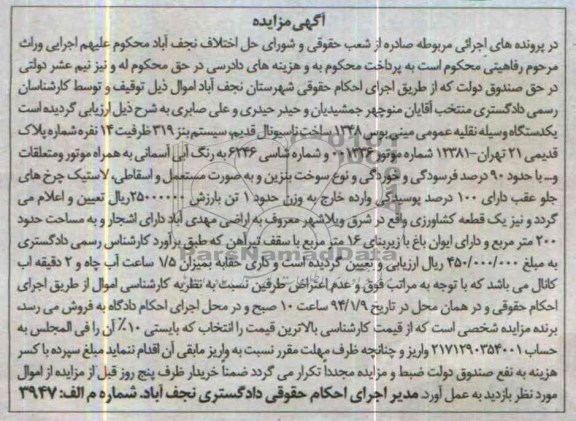 آگهی مزایده
در پرونده های اجرائی مربوطه صادره از شعب حقوقی و شورای حل اختلاف نجف آباد محکوم علیهم اجرایی وراث
مرحوم رفاهیتی محکوم است به پرداخت محکوم به و هزینه های دادرسی در حق محکوم له و نیز نیم عشر دولتی
در حق صندوق دولت که از طریق اجرای احکام حقوقی شهرستان نجف آباد اموال ذیل توقیف و توسط کارشناسان
رسمی دادگستری منتخب آقایان منوچهر جمشیدیان و حیدر حیدری و علی صابری به شرح ذیل ارزیابی گردیده است
یکدستگاه وسیله نقلیه عمومی مینی بوس ۱۳۴۸ ساخت ناسیونال قدیم، سیستم بنز ۳۱۹ ظرفیت ۱۴ نفره شماره پلاک
قدیمی ۲۱ تهران -۱۲۳۸۱ شماره موتور ۱۳۳۶ و شماره شاسی ۶۲۴۶ به رنگ آبی آسمانی به همراه موتور ومتعلقات
و... با حدود ۹۰ درصد فرسودگی و خوردگی و نوع سوخت بنزین و به صورت مستعمل و اسقاطی، لاستیک چرخ های
جلو عقب دارای ۱۰۰ درصد پوسیدگی وارده خارج به وزن حدود ۱ تن بارزش ۲۵۰۰۰۰۰۰ ریال تعیین و اعلام می
گردد و نیز یک قطعه کشاورزی واقع در شرق ویلاشهر معروف به اراضی مهدی آباد دارای اشجار و به مساحت حدود
۲۰۰ متر مربع و دارای ایوان باغ با زیربنای ۱۶ متر مربع با سقف تیرآهن که طبق برآورد کارشناس رسمی دادگستری
به مبلغ ۴۵۰/۰۰۰/۰۰۰ ریال ارزیابی و تعیین گردیده است و داری حقابه بمیزان ۱/۵ ساعت آب چاه و ۲ دقیقه اب
کانال می باشد که با توجه به مراتب فوق و عدم اعتراض طرفین نسبت به نظریه کارشناسی اموال از طریق اجرای
احکام حقوقی و در همان محل در تاریخ ۹۴/۱/۹ ساعت ۱۰ صبح و در محل اجرای احکام دادگاه به فروش می رسد،
برنده مزایده شخصی است که از قیمت کارشناسی بالاترین قیمت را انتخاب که بایستی ۱۰٪ آن را فی المجلس به
حساب ۲۱۷۱۲۹۰۳۵۴۰۰۱ واریز و چنانچه ظرف مهلت مقرر نسبت به واریز مابقی آن اقدام ننماید مبلغ سپرده با کسر
هزینه به نفع صندوق دولت ضبط و مزایده مجددا تکرار می گردد ضمنا خریدار ظرف پنج روز قبل از مزایده از اموال
مورد نظر بازدید به عمل آورد. مدیر اجرای احکام حقوقی دادگستری نجف آباد. شماره م الف: ۳۹۴۷
ParsNamadData